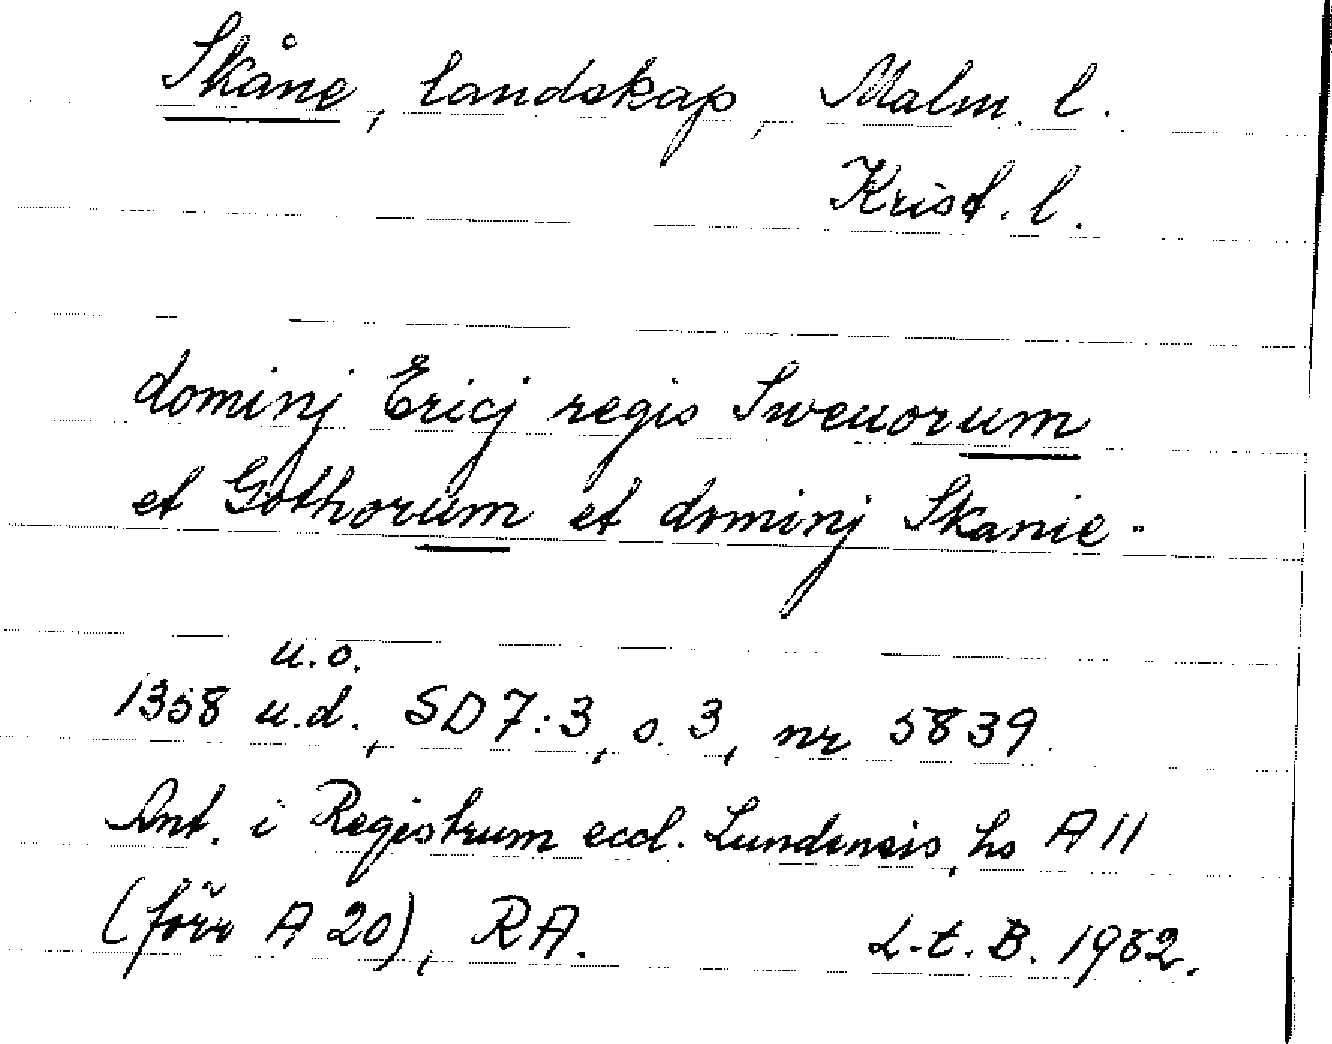 Skåne, landskap, Malm. l.
Krist. l.
dominj Ericj regis Sweuorum
et Gothorum et dominj Skanie.
u.o.
1358 u.d., SD 7:3, s. 3, nr 5839.
Ant. i Registrum eccl. Lundensis, hs A 11
(förr A 20), RA. L.t.B. 1962.